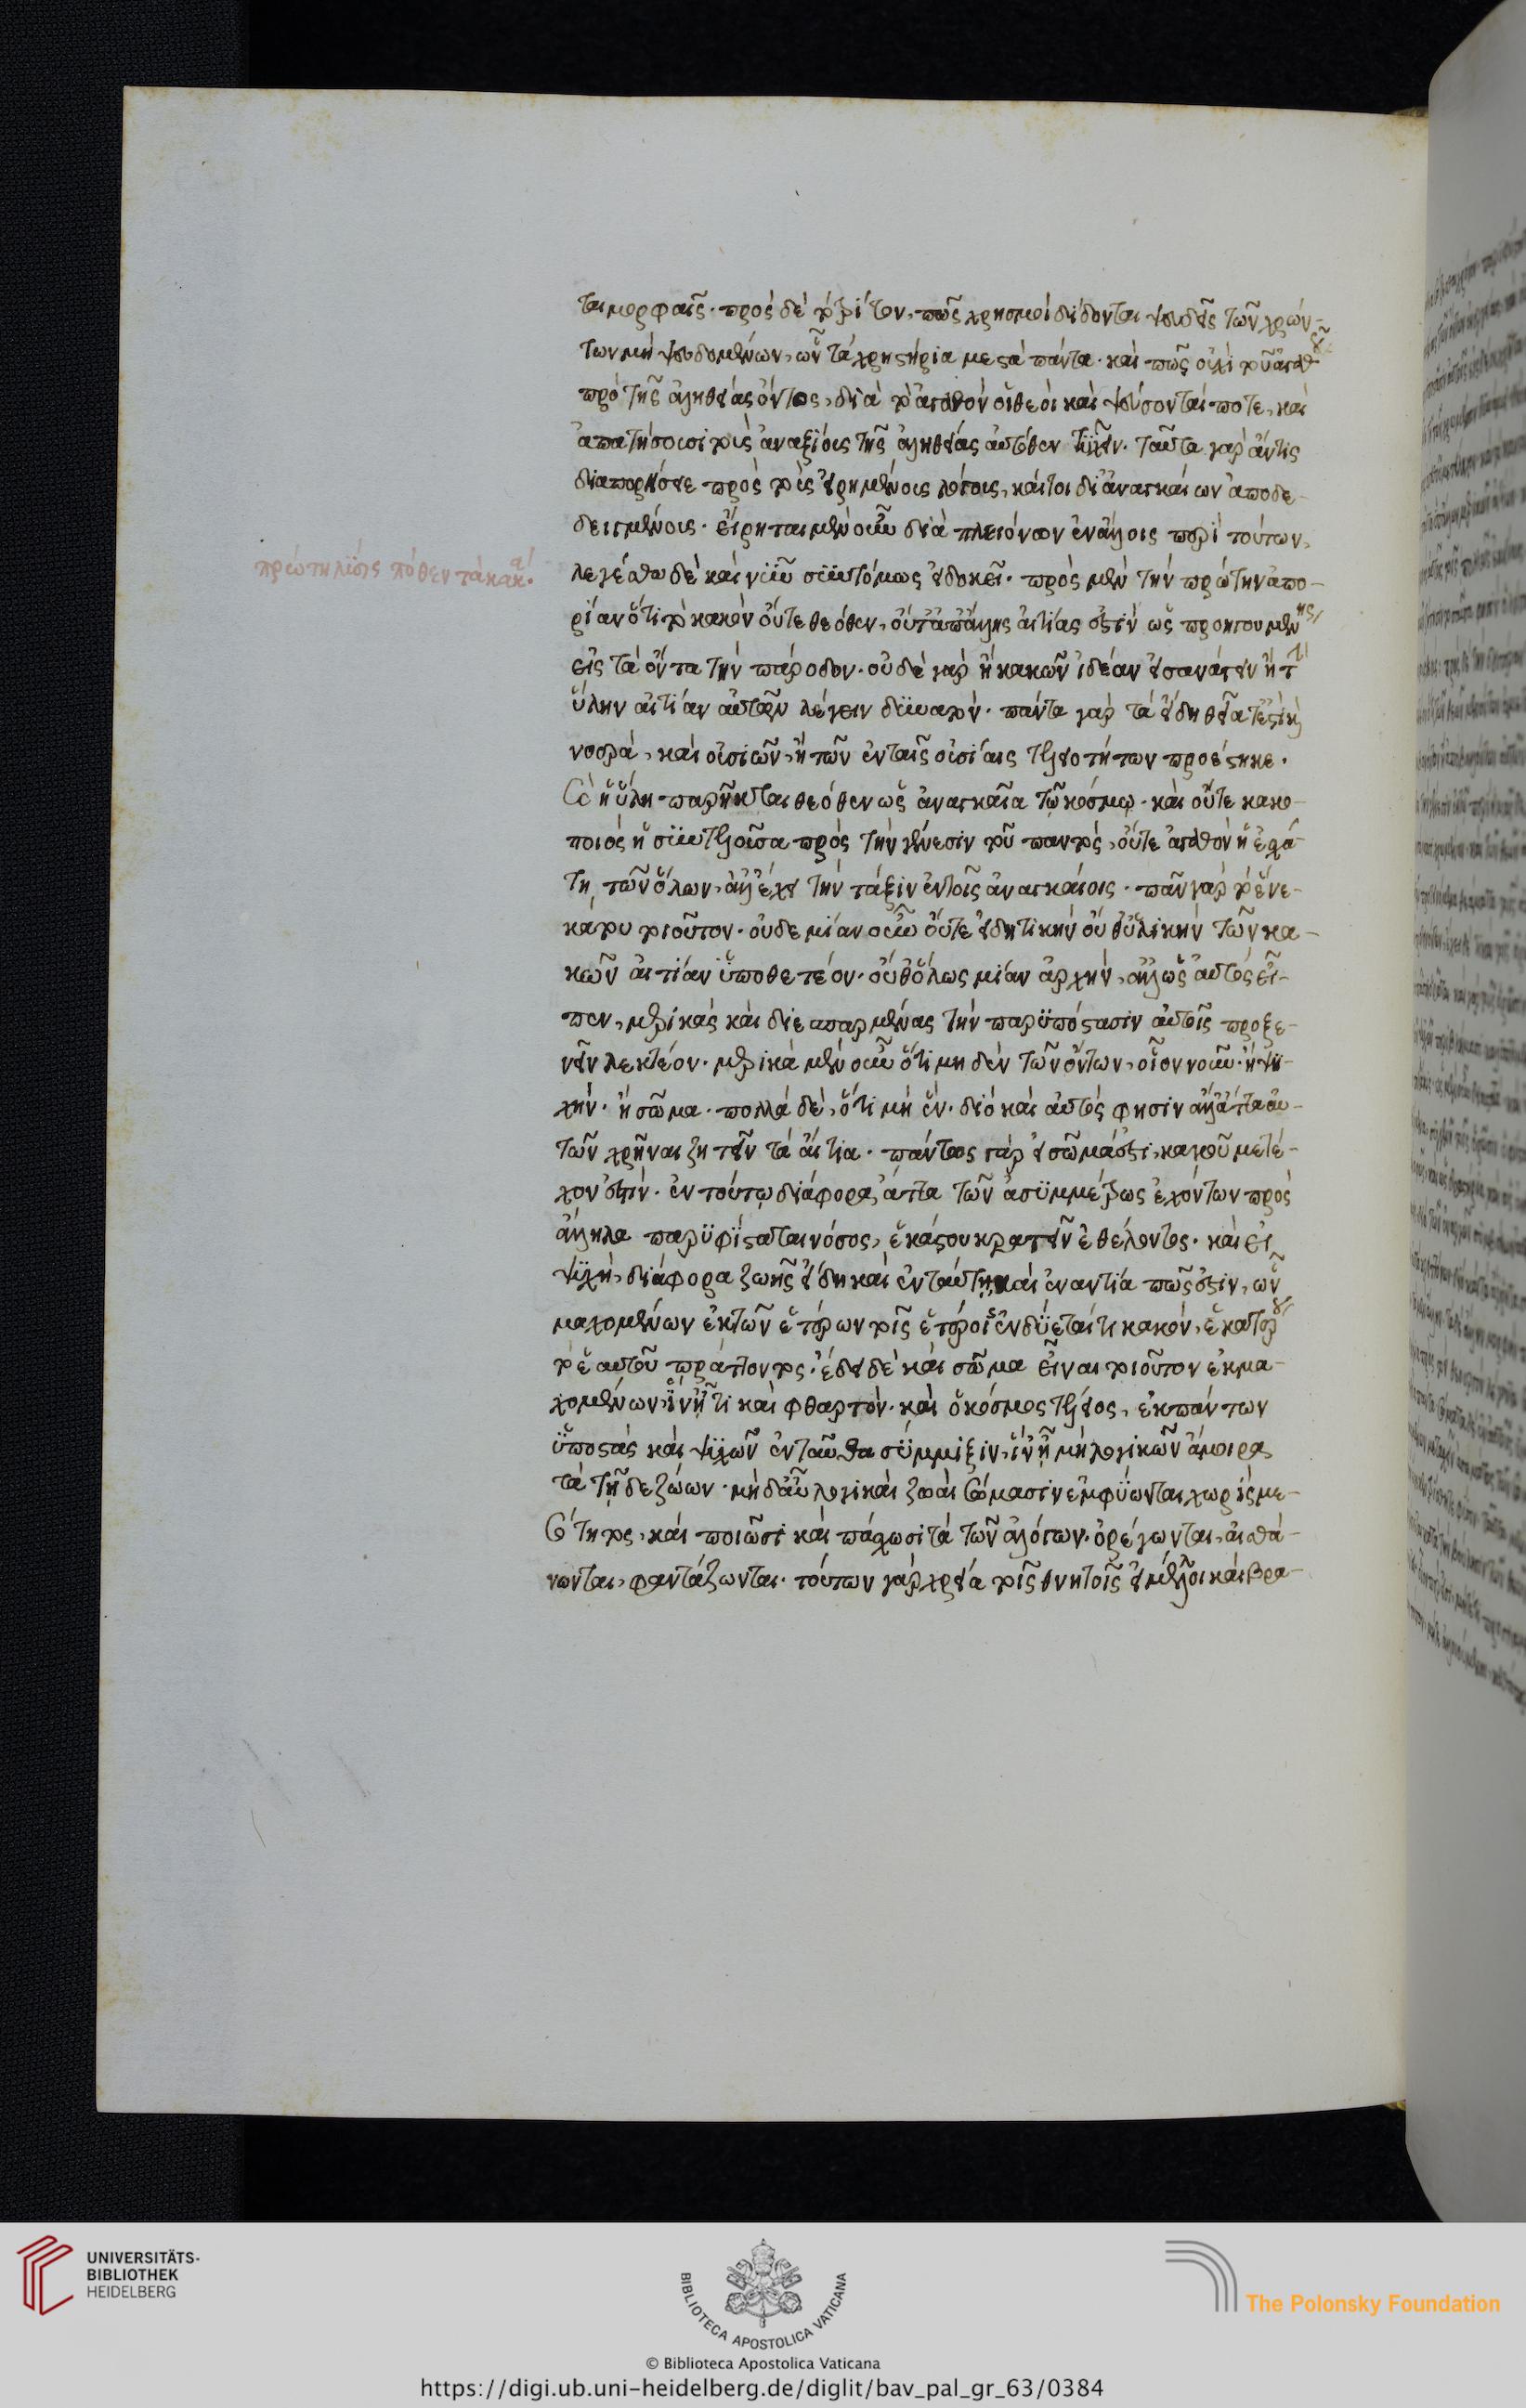 ται μορφαῖς. πρὸς δὲ τὸ τρίτον, πῶς χρησμοὶ δίδονται ψευδεῖς τῶν χρών-
των μὴ ψευδομένων, ὧν τὰ χρηστήρια μεστὰ πάντα. καὶ πῶς οὐχὶ τοῦ ἀγαθοῦ
πρὸ τῆς ἀληθείας ὄντος, διὰ τὸ ἀγαθὸν οἱ θεοὶ καὶ ψεύσονταί ποτε, καὶ
ἀπατήσουσι τοὺς ἀναξίους τῆς ἀληθείας αὐτόθεν τυχεῖν. ταῦτα γὰρ ἄν τις
διαπορήσειε πρὸς τοῖς εἰρημένοις λόγοις, καίτοι δι' ἀναγκαίων ἀποδε-
δειγμένοις. εἴρηται μὲν οὖν διὰ πλειόνων ἐν ἄλλοις περὶ τούτων,
πρώτη λύσις πόθεν τὰ κακά.
λεγέσθω δὲ καὶ νῦν συντόμως εἰ δοκεῖ. πρὸς μὲν τὴν πρώτην ἀπο-
ρίαν ὅτι τὸ κακὸν οὔτε θεόθεν, οὔτ' ἀπ' ἄλλης αἰτίας ἐστὶν ὡς προηγουμένης
εἰς τὰ ὄντα τὴν πάροδον. οὐδὲ γὰρ ἢ κακῶν ἰδέαν εἰσανάγειν ἢ τὴν
ὕλην αἰτίαν αὐτῶν λέγειν δυνατόν. πάντα γὰρ τὰ εἴδη θεῖά τέ ἐστι καὶ
νοερά, καὶ οὐσιῶν, ἢ τῶν ἐν ταῖς οὐσίαις τελειοτήτων προέστηκε.
καὶ ἡ ὕλη παρῆκται θεόθεν ὡς ἀναγκαῖα τῷ κόσμῳ. καὶ οὔτε κακο-
ποιὸς ἡ συντελοῦσα πρὸς τὴν γένεσιν τοῦ παντός, οὔτε ἀγαθὸν ἡ ἐσχά-
τη τῶν ὅλων, ἀλλ' ἔχει τὴν τάξιν ἐν τοῖς ἀναγκαίοις. πᾶν γὰρ τὸ ἕνε-
κά του τοιοῦτον. οὐδεμίαν οὖν οὔτε εἰδητικὴν οὔθ' ὑλικὴν τῶν κα-
κῶν αἰτίαν ὑποθετέον. οὔθ' ὅλως μίαν ἀρχήν, ἀλλ' ὡς αὐτὸς εἶ-
πεν, μερικὰς καὶ διεσπαρμένας τὴν παρυπόστασιν αὐτοῖς προξε-
νεῖν λεκτέον. μερικὰ μὲν οὖν ὅτι μηδὲν τῶν ὄντων, οἷον νοῦν. ἢ ψυ-
χήν. ἢ σῶμα. πολλὰ δὲ, ὅτι μὴ ἕν. διὸ καὶ αὐτός φησιν ἀλλ' ἄττα αὐ-
τῶν χρῆναι ζητεῖν τὰ αἴτια. πάντως γὰρ εἰ σῶμά ἐστι, κακοῦ μετέ-
χον ἐστίν. ἐν τούτῳ διάφορα, ἅττα τῶν ἀσυμμέτρως ἐχόντων πρὸς
ἄλληλα παρυφίσταται νόσος, ἑκάστου κρατεῖν ἐθέλοντος. καὶ εἰ
ψυχή, διάφορα ζωῆς εἴδη καὶ ἐν ταύτῃ, καὶ ἐναντία πώς ἐστιν, ὧν
μαχομένων ἐκ τῶν ἑτέρων τοῖς ἑτέροις ἐνδύεταί τι κακόν, ἑκατέρου
τὸ ἑαυτοῦ πράττοντος. ἔδει δὲ καὶ σῶμα εἶναι τοιοῦτον ἐκ μα-
χομένων, ἵν' ᾖ τι καὶ φθαρτόν. καὶ ὁ κόσμος τέλειος, ἐκ πάντων
ὑποστάς. καὶ ψυχῶν ἐνταῦθα σύμμιξιν, ἵν' ᾖ μὴ λογικῶν ἄμοιρα
τὰ τῇδε ζώων. μὴ δ' αὖ λογικαὶ ζωαὶ σώμασιν ἐμφύωνται χωρὶς με-
σότητος, καὶ ποιῶσι καὶ πάσχωσι τὰ τῶν ἀλόγων. ὀρέγωνται, αἰσθά-
νωνται, φαντάζωνται. τούτων γὰρ χρεία τοῖς θνητοῖς εἰ μέλλοι καὶ βρα-
UNIVERSITÄTS-
BIBLIOTHEK
HEIDELBERG
BIBLIOTECA APOSTOLICA VATICANA
The Polonsky Foundation
© Biblioteca Apostolica Vaticana
https://digi.ub.uni-heidelberg.de/diglit/bav_pal_gr_63/0384